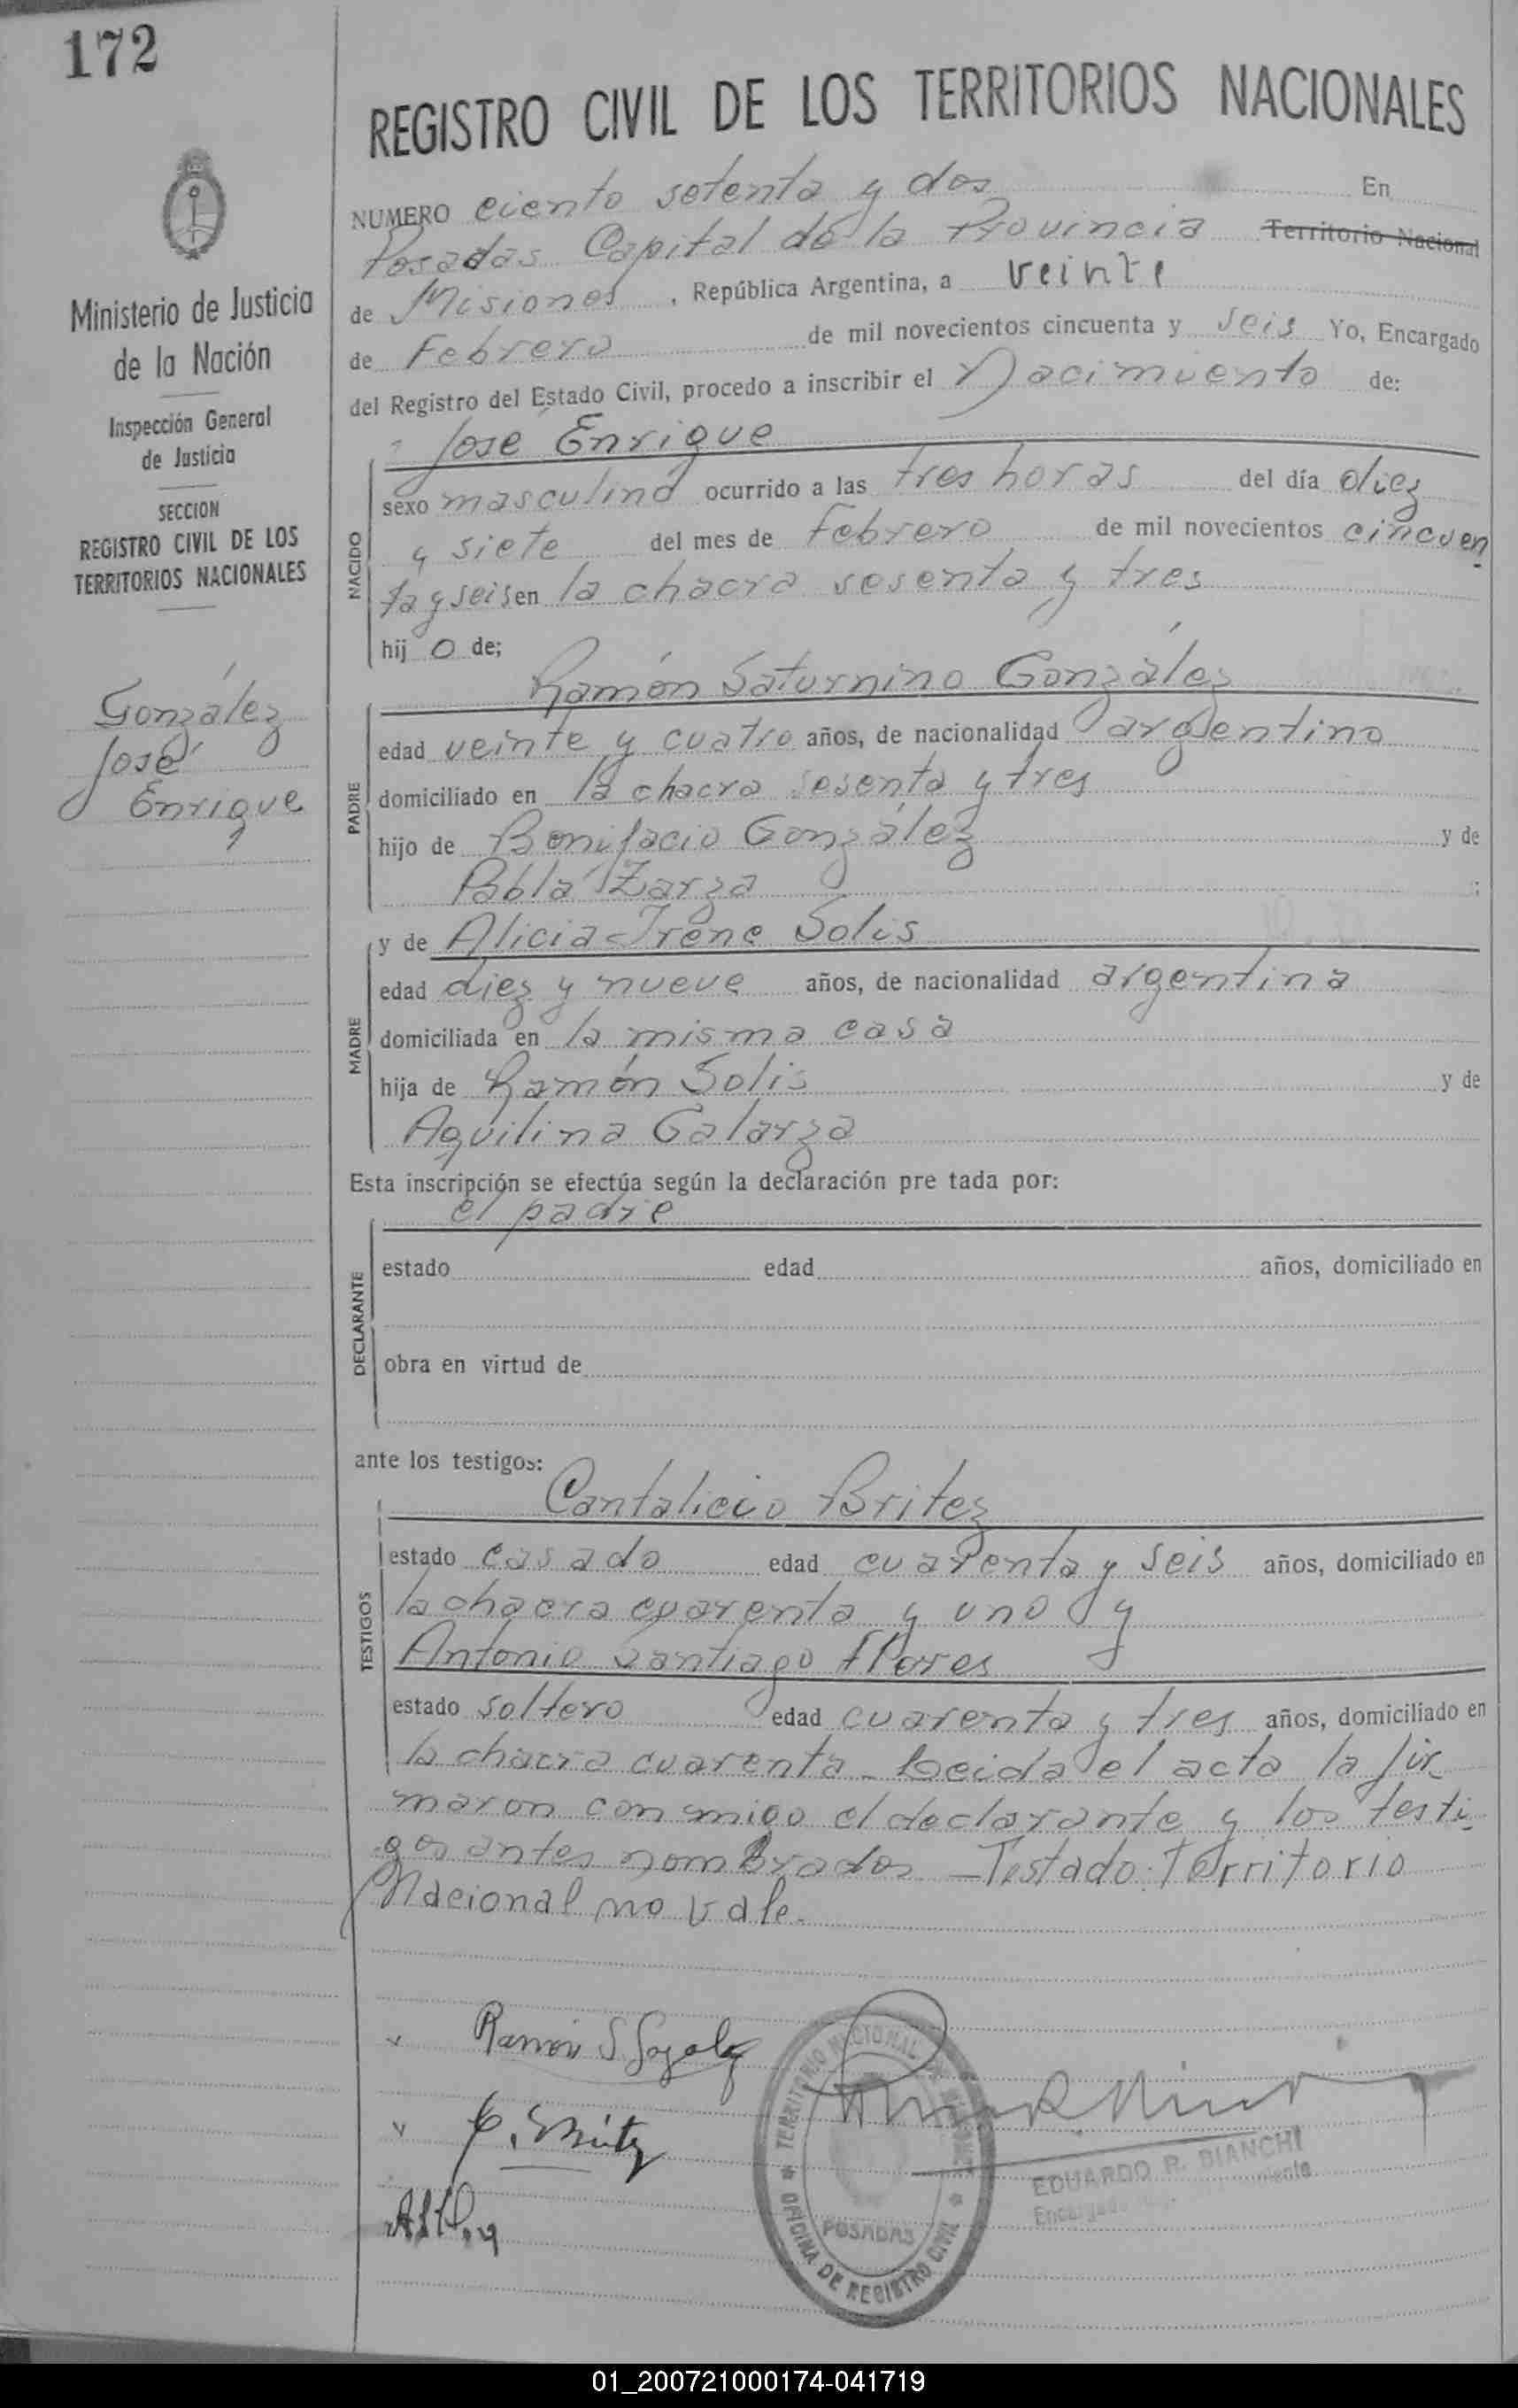 172
REGISTRO CIVIL DE LOS TERRITORIOS NACIONALES
Ministerio de Justicia
de la Nación
Inspección General
de Justicia
SECCION
REGISTRO CIVIL DE LOS
TERRITORIOS NACIONALES
González
José
Enrique
NUMERO ciento setenta y dos En
Posadas Capital de la Provincia Territorio Nacional
de Misiones, República Argentina, a veinte
de Febrero de mil novecientos cincuenta y seis Yo, Encargado
del Registro del Estado Civil, procedo a inscribir el Nacimiento de:
José Enrique
NACIDO
sexo masculino ocurrido a las tres horas del día diez
y siete del mes de Febrero de mil novecientos cincuen
ta y seis en la chacra sesenta y tres
hijo de;
Ramón Saturnino González
PADRE
edad veinte y cuatro años, de nacionalidad argentino
domiciliado en la chacra sesenta y tres
hijo de Bonifacio González y de
Pabla Zarza ;
MADRE
y de Alicia Irene Solis
edad diez y nueve años, de nacionalidad argentina
domiciliada en la misma casa
hija de Ramón Solis y de
Aquilina Galarza
Esta inscripción se efectúa según la declaración pre tada por:
el padre
DECLARANTE
estado edad años, domiciliado en
obra en virtud de
ante los testigos:
Cantalicio Britez
TESTIGOS
estado casado edad cuarenta y seis años, domiciliado en
la chacra cuarenta y uno y
Antonio Santiago Flores
estado soltero edad cuarenta y tres años, domiciliado en
la chacra cuarenta - Leida el acta la fir-
maron conmigo el declarante y los testi-
gos antes nombrados - Testado: Territorio
Nacional no vale.
Ramón S. Gozalez
C. Britez
TERRITORIO NACIONAL DE MISIONES
POSADAS
OFICINA DE REGISTRO CIVIL
EDUARDO R. BIANCHI
Encargado
01_200721000174-041719